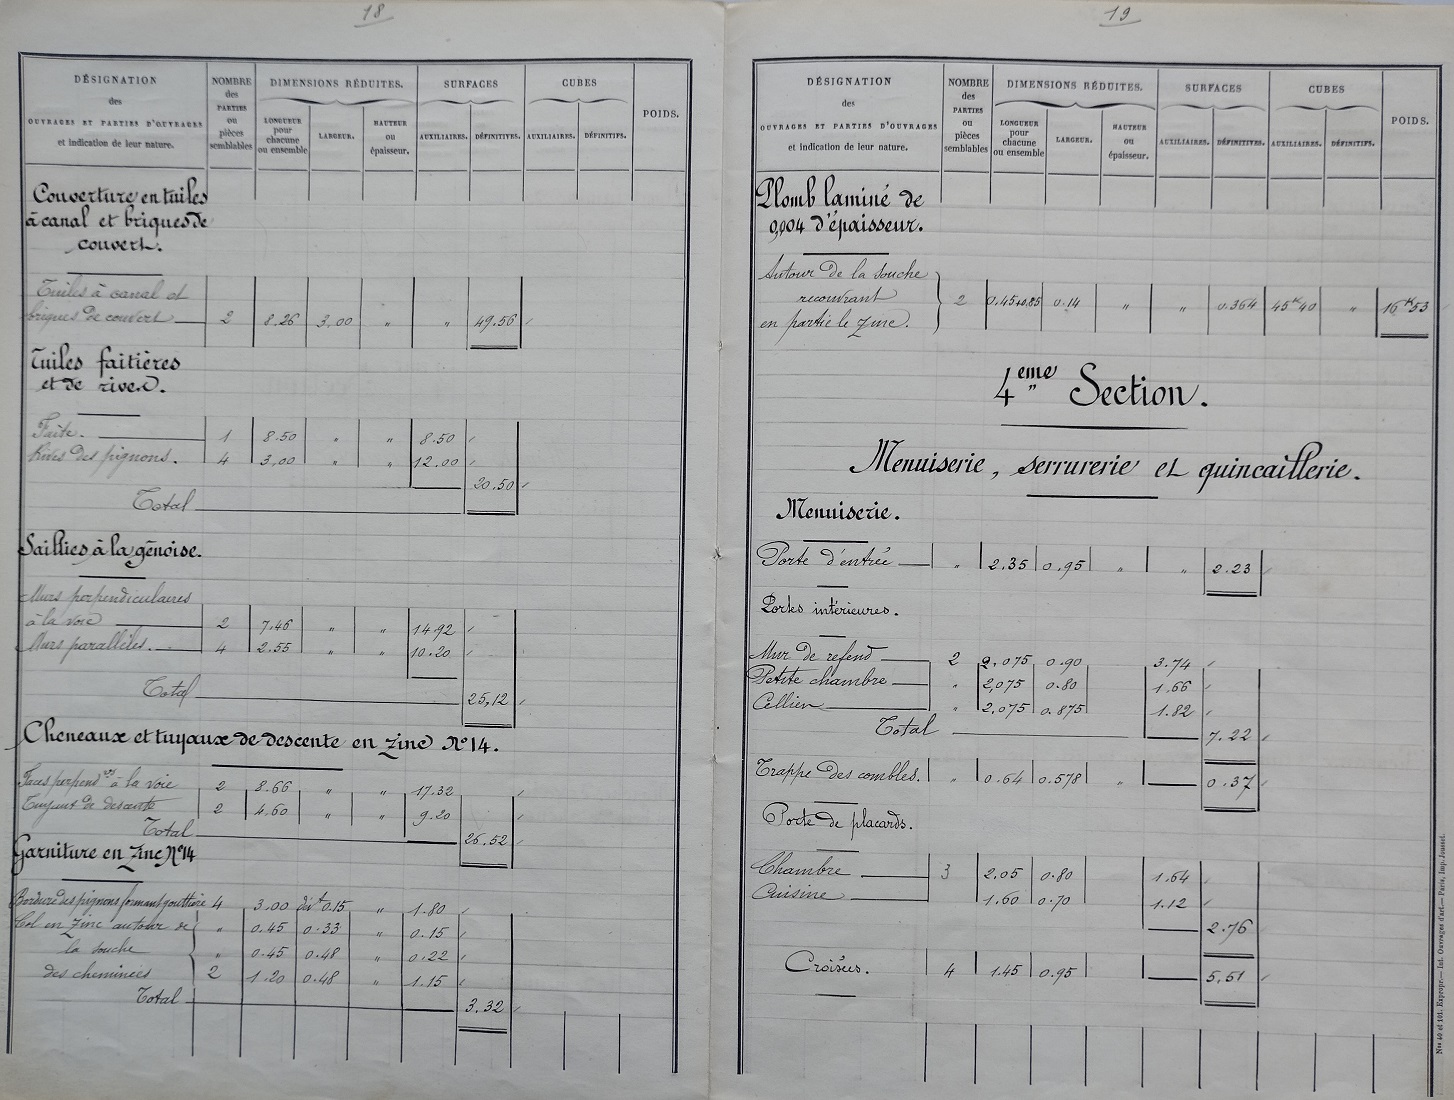 18
DÉSIGNATION
des
OUVRAGES ET PARTIES D'OUVRAGES
et indication de leur nature.
NOMBRE
des
PARTIES
ou
pièces
semblables
DIMENSIONS RÉDUITES.
LONGUEUR
pour
chacune
ou ensemble
LARGEUR.
HAUTEUR
ou
épaisseur.
SURFACES
AUXILIAIRES.
DÉFINITIVES.
CUBES
AUXILIAIRES.
DÉFINITIFS.
POIDS.
Couverture en tuiles
à canal et briques de
couvert.
Tuiles à canal et
briques de couvert 2 8.26 3,00 " " 49.56
Tuiles faitières
et de rives.
Faite. 1 8.50 " " 8.50
Rives des pignons. 4 3,00 " " 12.00
20.50
Total
Saillies à la génoise.
Murs perpendiculaires
à la voie 2 7.46 " " 14.92
Murs parallèles. 4 2.55 " " 10.20
Total 25,12
Cheneaux et tuyaux de descente en zinc N°14.
Faces perpend res à la voie 2 8.66 " " 17.32
Tuyaux de descente 2 4.60 " " 9.20
Total 26.52
Garniture en zinc N°14
Bordure des pignons formant gouttière 4 3.00 dévt 0.15 " 1.80
Col en zinc autour de " 0.45 0.33 " 0.15
la souche " 0.45 0.48 " 0.22
des cheminées 2 1.20 0.48 " 1.15
Total 3.32
19
DÉSIGNATION
des
OUVRAGES ET PARTIES D'OUVRAGES
et indication de leur nature.
NOMBRE
des
PARTIES
ou
pièces
semblables
DIMENSIONS RÉDUITES.
LONGUEUR
pour
chacune
ou ensemble
LARGEUR.
HAUTEUR
ou
épaisseur.
SURFACES
AUXILIAIRES.
DÉFINITIVES.
CUBES
AUXILIAIRES.
DÉFINITIFS.
POIDS.
Plomb laminé de
0,004 d'épaisseur.
Autour de la souche
recouvrant 2 0.45+0.85 0.14 " " 0.364 45K40 " 16K53
en partie le zinc.
4eme Section.
Menuiserie, serrurerie et quincaillerie.
Menuiserie.
Porte d'entrée " 2.35 0.95 " " 2.23
Portes intérieures.
Mur de refend 2 2.075 0.90 3.74
Petite chambre " 2,075 0.80 1.66
Cellier " 2.075 0.875 1.82
Total 7.22
Trappe des combles. " 0.64 0.578 " 0.37
Porte de placards.
Chambre 3 2,05 0.80 1.64
Cuisine 1.60 0.70 1.12
2.76
Croisées. 4 1.45 0.95 5,51
Nos 40 et 101. Expropr.— Int. Ouvrages d'art.— Paris, Imp. Jousset.